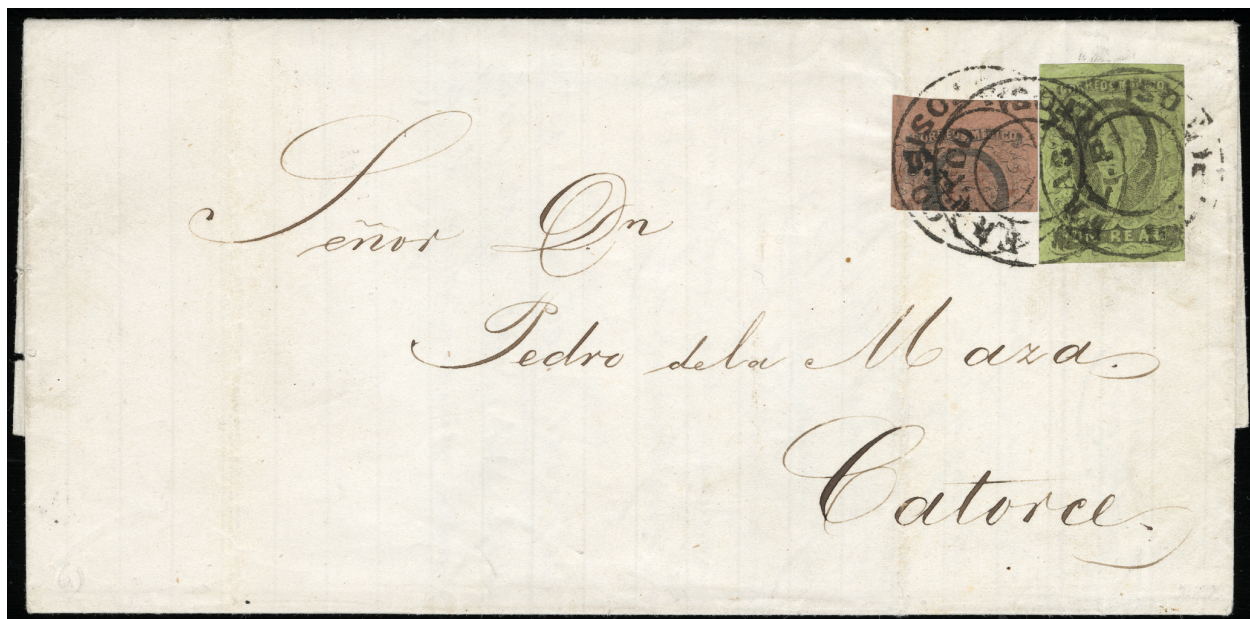 CORREOS MEXICO
CORREOS MEXICO
UN REAL
Señor Dn
Pedro de la Maza
Catorce